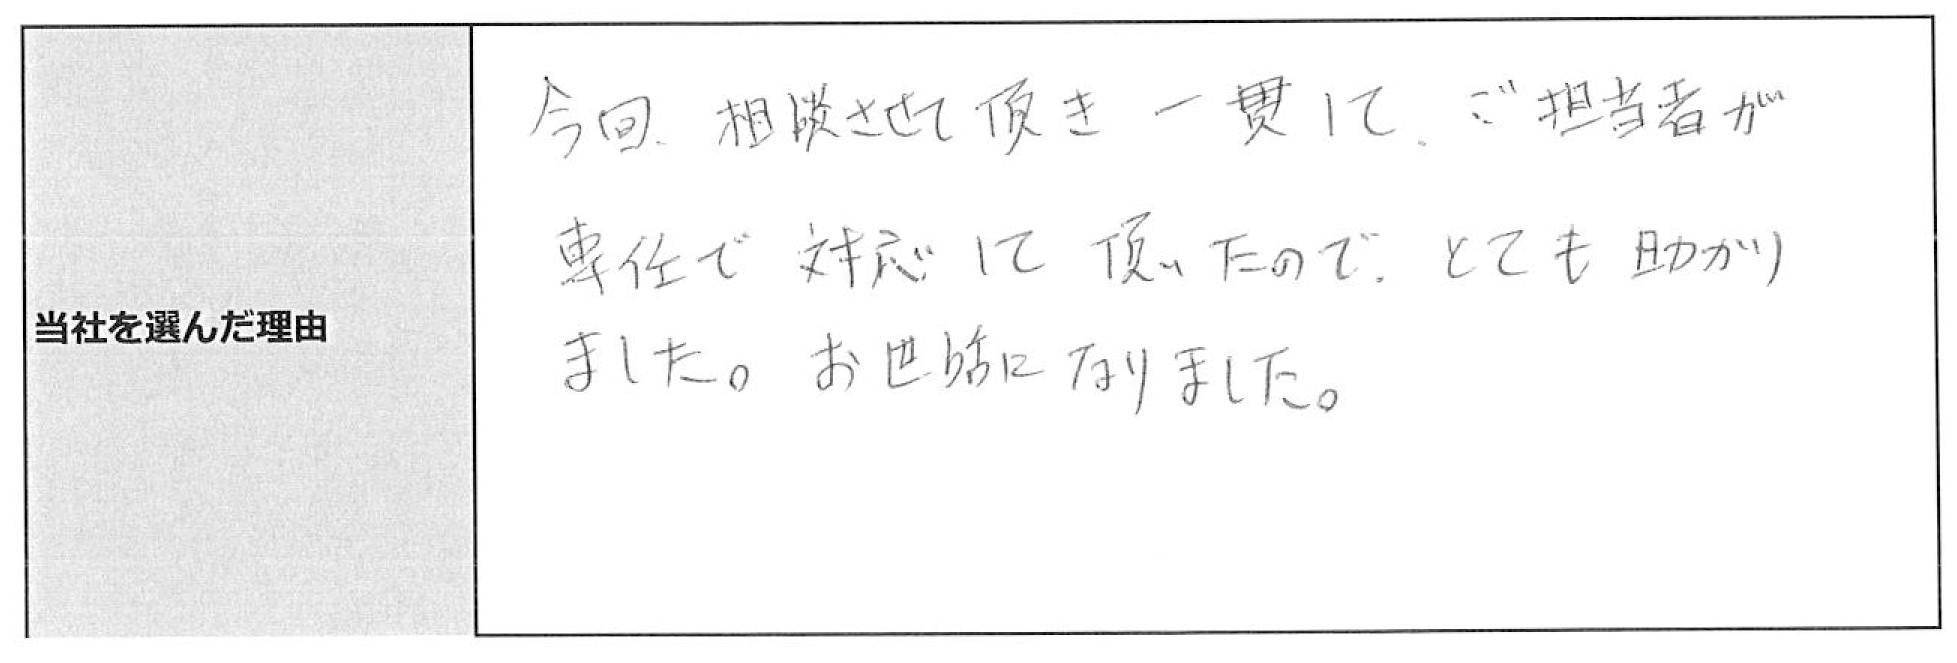 当社を選んだ理由
今回、相談させて頂き一貫して、ご担当者が
専任で対応して頂いたので、とても助かり
ました。お世話になりました。